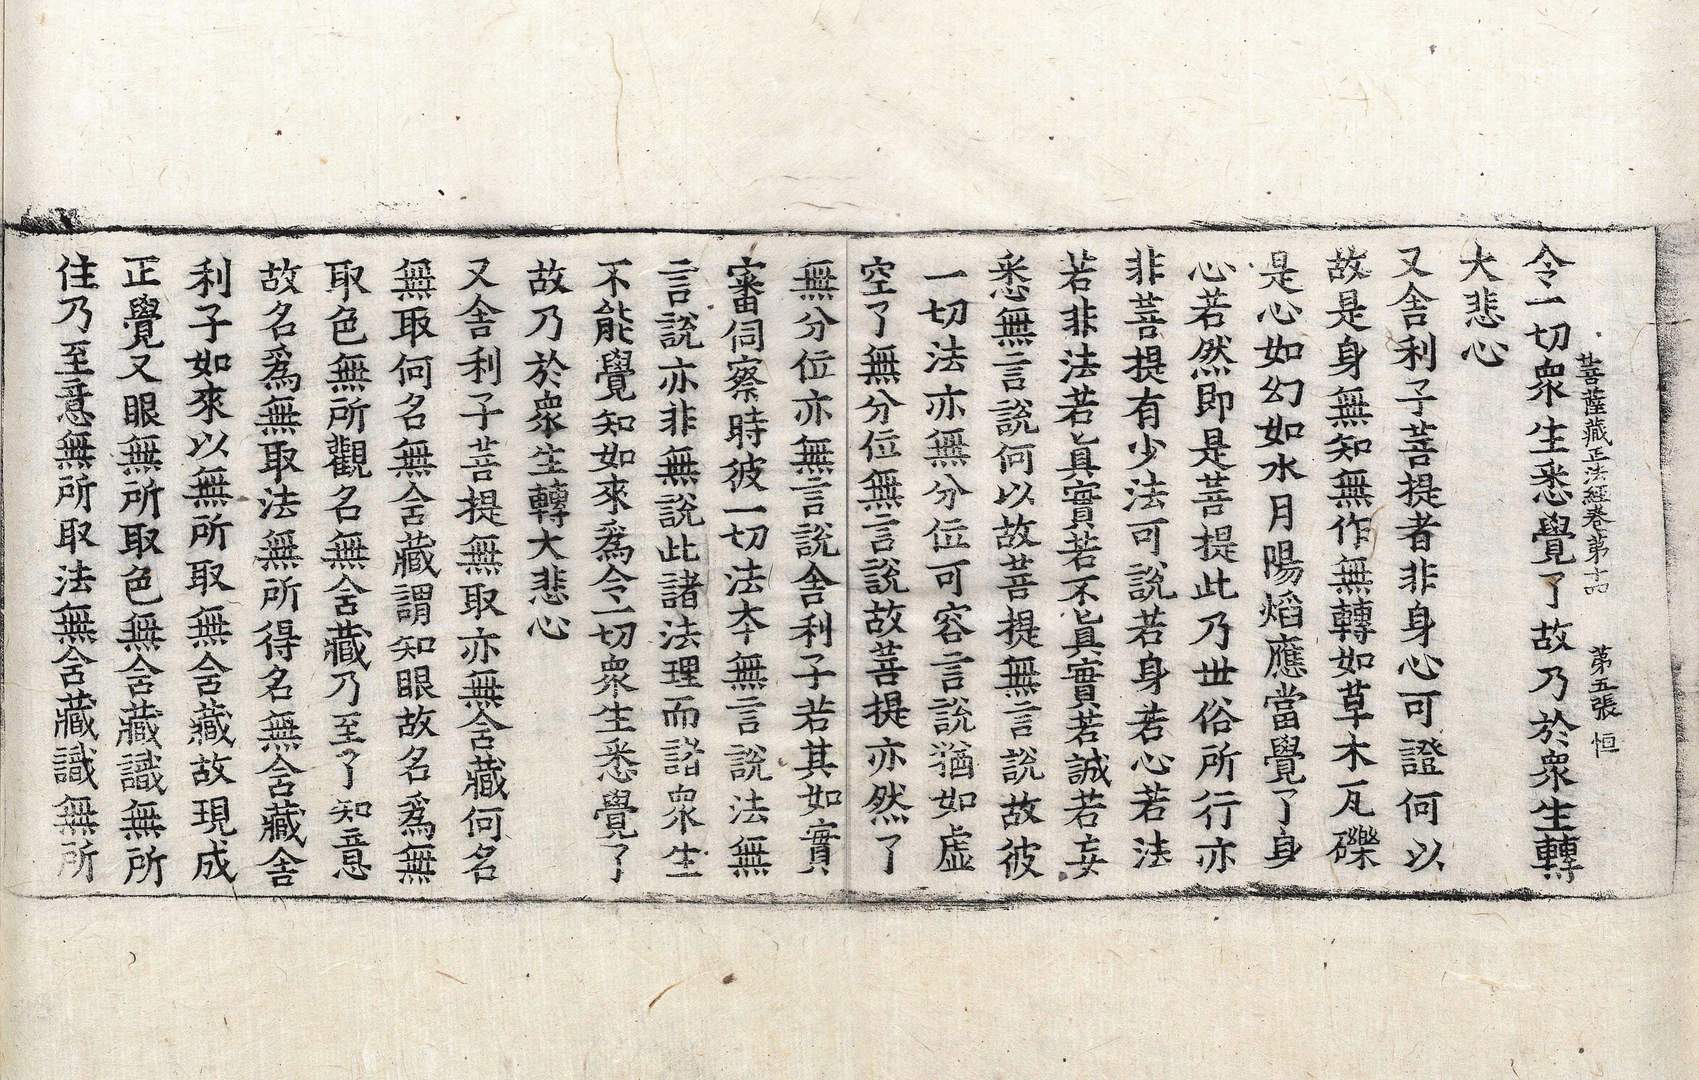 菩薩藏正法經卷第十四　第五張　恒
令一切衆生悉覺了故乃於衆生轉
大悲心
又舍利子菩提者非身心可證何以
故是身無知無作無轉如草木瓦礫
是心如幻如水月陽焰應當覺了身
心若然即是菩提此乃世俗所行亦
非菩提有少法可說若身若心若法
若非法若眞實若不眞實若誠若妄
悉無言說何以故菩提無言說故彼
一切法亦無分位可容言說猶如虛
空了無分位無言說故菩提亦然了
無分位亦無言說舍利子若其如實
審伺察時彼一切法本無言說法無
言說亦非無說此諸法理而諸衆生
不能覺知如來爲令一切衆生悉覺了
故乃於衆生轉大悲心
又舍利子菩提無取亦無舍藏何名
無取何名無舍藏謂知眼故名爲無
取色無所觀名無舍藏乃至了知意
故名爲無取法無所得名無舍藏舍
利子如來以無所取無舍藏故現成
正覺又眼無所取色無舍藏識無所
住乃至意無所取法無舍藏識無所